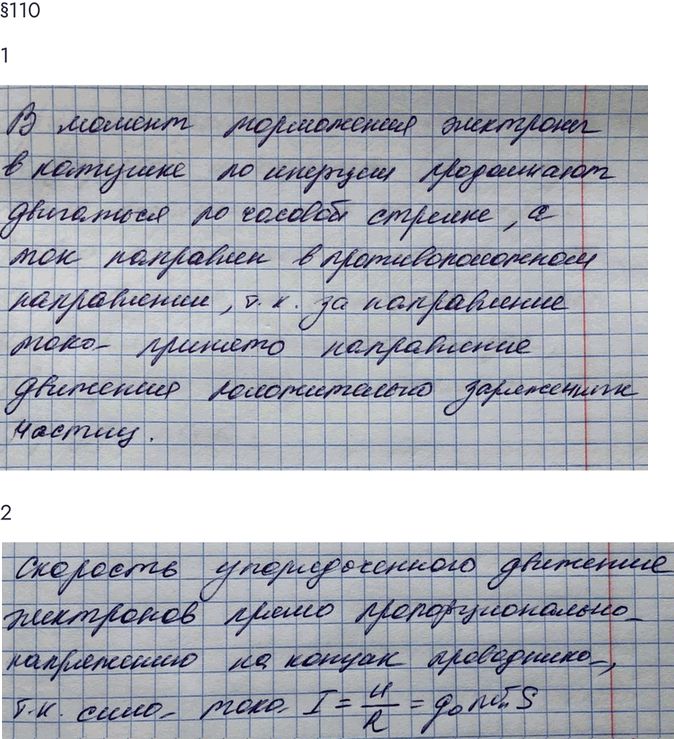 §110
1
В момент торможения электроны
в катушке по инерции продолжают
двигаться по часовой стрелке, а
ток направлен в противоположном
направлении, т.к. за направление
тока принято направление
движения положительно заряженных
частиц.
2
Скорость упорядоченного движения
электронов прямо пропорциональна
напряжению на концах проводника,
т.к. сила тока I = U/R = q₀nῡₙS